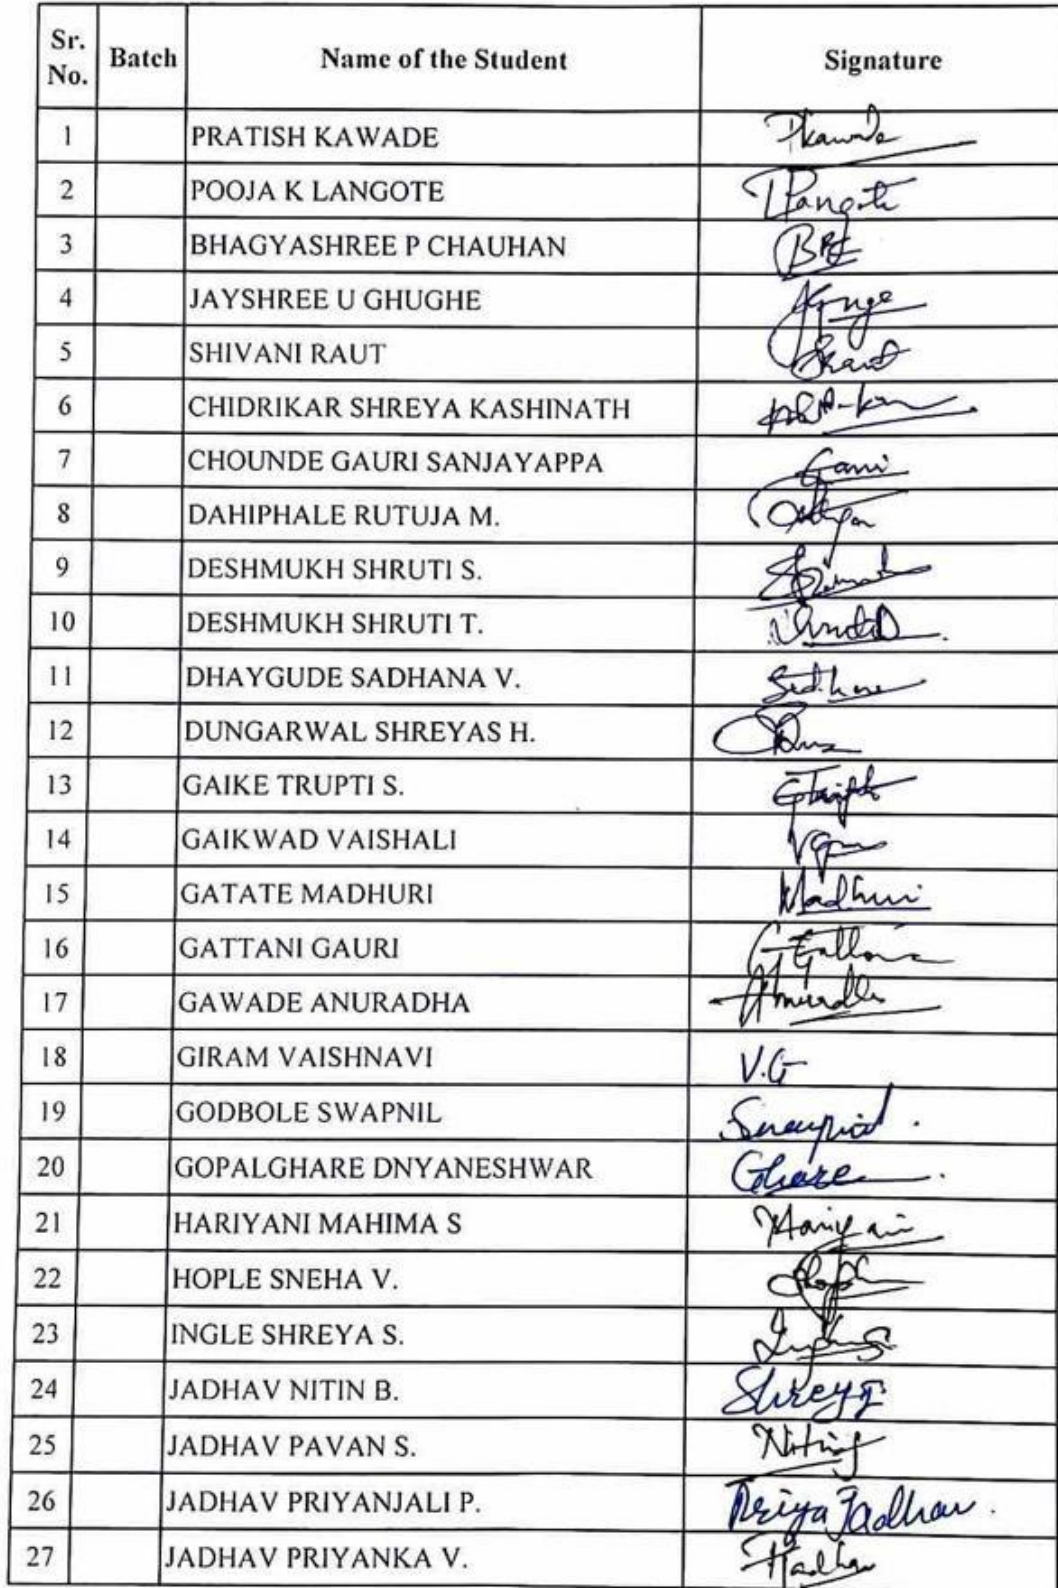 Sr. No. Batch Name of the Student Signature
1 PRATISH KAWADE Pkawade
2 POOJA K LANGOTE PLangote
3 BHAGYASHREE P CHAUHAN BPC
4 JAYSHREE U GHUGHE
5 SHIVANI RAUT SRaut
6 CHIDRIKAR SHREYA KASHINATH
7 CHOUNDE GAURI SANJAYAPPA Gauri
8 DAHIPHALE RUTUJA M.
9 DESHMUKH SHRUTI S.
10 DESHMUKH SHRUTI T.
11 DHAYGUDE SADHANA V.
12 DUNGARWAL SHREYAS H.
13 GAIKE TRUPTI S.
14 GAIKWAD VAISHALI
15 GATATE MADHURI Madhuri
16 GATTANI GAURI
17 GAWADE ANURADHA
18 GIRAM VAISHNAVI V.G
19 GODBOLE SWAPNIL
20 GOPALGHARE DNYANESHWAR Ghare
21 HARIYANI MAHIMA S
22 HOPLE SNEHA V.
23 INGLE SHREYA S.
24 JADHAV NITIN B.
25 JADHAV PAVAN S.
26 JADHAV PRIYANJALI P. Priya Jadhav.
27 JADHAV PRIYANKA V.